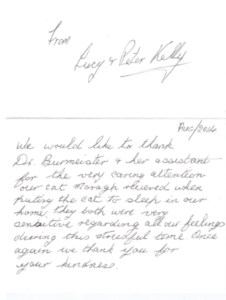 From
Lucy & Peter Kelly
Aug/2014
We would like to thank
Dr. Burmeister & her assistant
for the very caring attention
our cat received when
puting the cat to sleep in our
home. They both were very
sensitive regarding all our feelings
during this stressful time. Once
again we thank you for
your kindness.